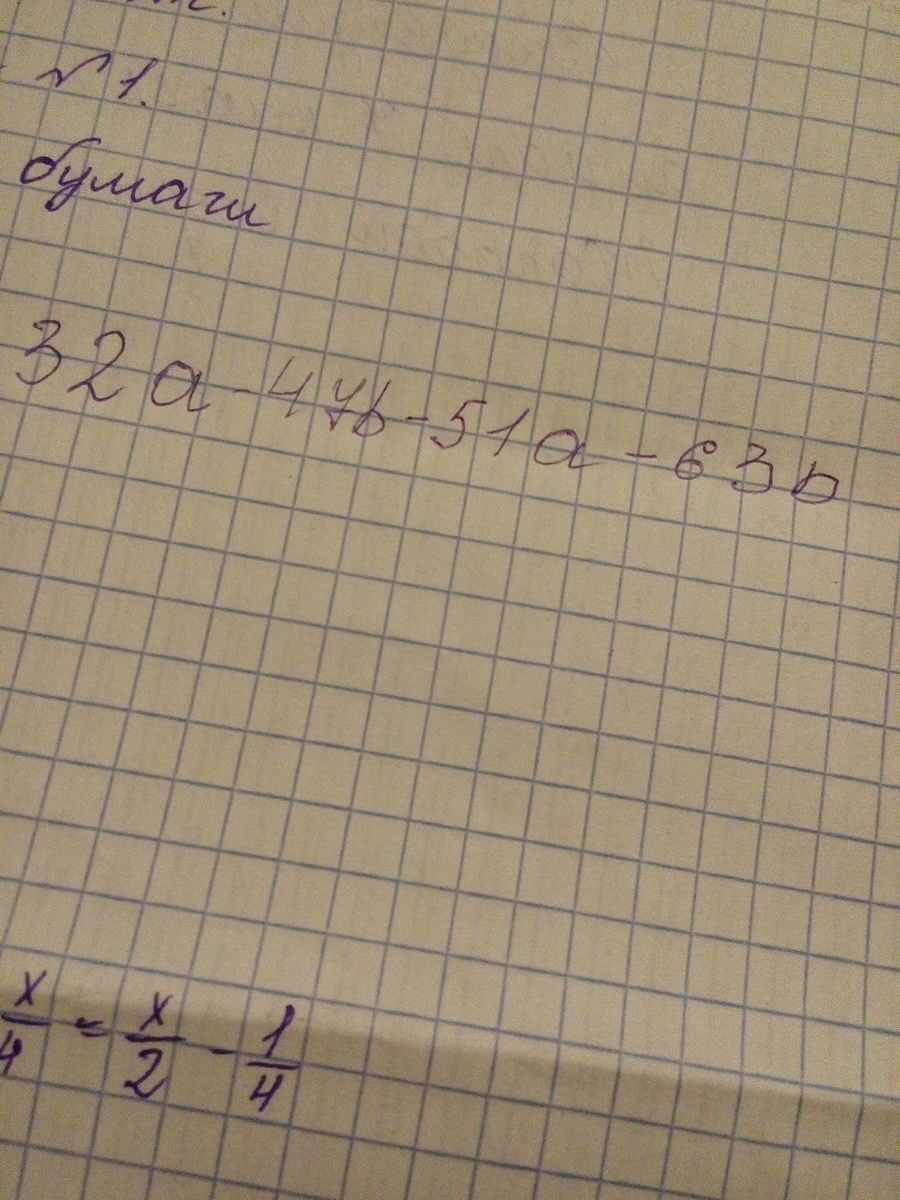 №1.
бумаги
32a-47b-51a-63b
x/4 = x/2 - 1/4